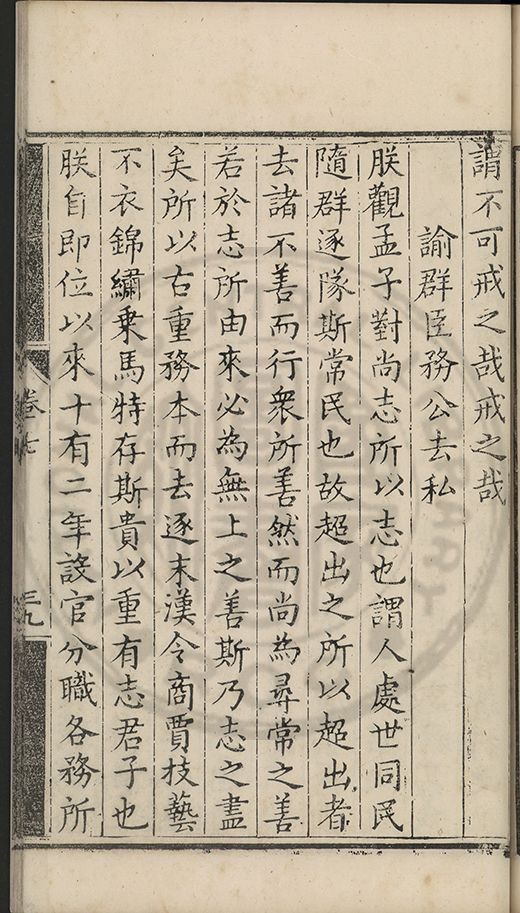 謂不可戒之哉戒之哉
諭群臣務公去私
朕觀孟子對尚志所以志也謂人處世同民
隨群逐隊斯常民也故超出之所以超出者
去諸不善而行衆所善然而尚為尋常之善
若於志所由來必為無上之善斯乃志之盡
矣所以古重務本而去逐末漢令商賈技藝
不衣錦繡乗馬特存斯貴以重有志君子也
朕自即位以來十有二年設官分職各務所
卷七
三九